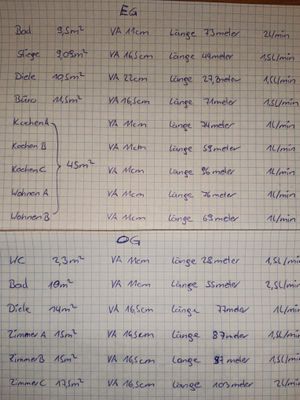 EG
Bad 9,5m² VA 11cm Länge 73meter 2L/min
Stiege 9,09m² VA 16,5cm Länge 44meter 1,5L/min
Diele 10,5m² VA 22cm Länge 27,2meter 1,5L/min
Büro 11,5m² VA 16,5cm Länge 71meter 1,5L/min
Kochen A VA 11cm Länge 74meter 1L/min
Kochen B VA 11cm Länge 59meter 1L/min
Kochen C 45m² VA 11cm Länge 96meter 1L/min
Wohnen A VA 11cm Länge 76meter 1L/min
Wohnen B VA 11cm Länge 69meter 1L/min
OG
WC 2,3m² VA 11cm Länge 28meter 1,5L/min
Bad 10m² VA 11cm Länge 55meter 2,5L/min
Diele 14m² VA 16,5cm Länge 77meter 1L/min
Zimmer A 15m² VA 16,5cm Länge 87meter 1L/min
Zimmer B 15m² VA 16,5cm Länge 97meter 1L/min
Zimmer C 17,5m² VA 16,5cm Länge 103meter 2L/min